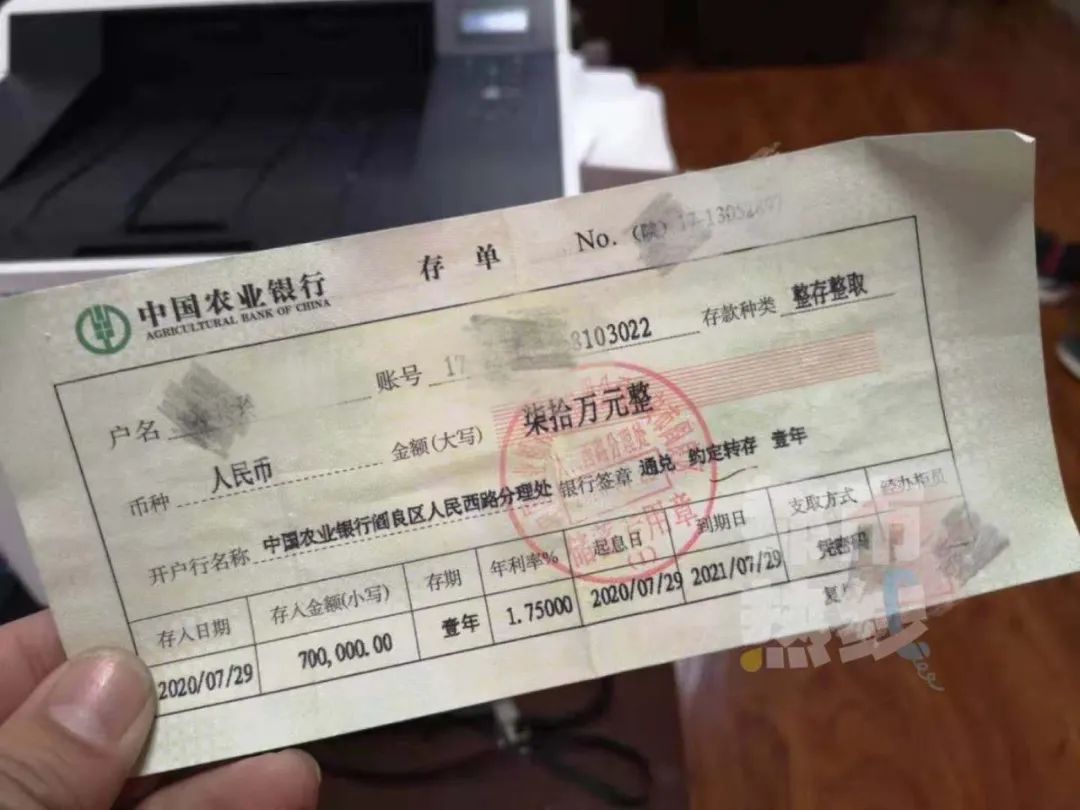 中国农业银行
AGRICULTURAL BANK OF CHINA
存单
No. (陕) 17-130
户名
账号 17 3103022
存款种类 整存整取
币种 人民币
金额(大写) 柒拾万元整
开户行名称 中国农业银行阎良区人民西路分理处 银行签章 通兑 约定转存 壹年
存入日期 存入金额(小写) 存期 年利率% 起息日 到期日 支取方式 经办柜员
2020/07/29 700,000.00 壹年 1.75000 2020/07/29 2021/07/29 凭密码
复